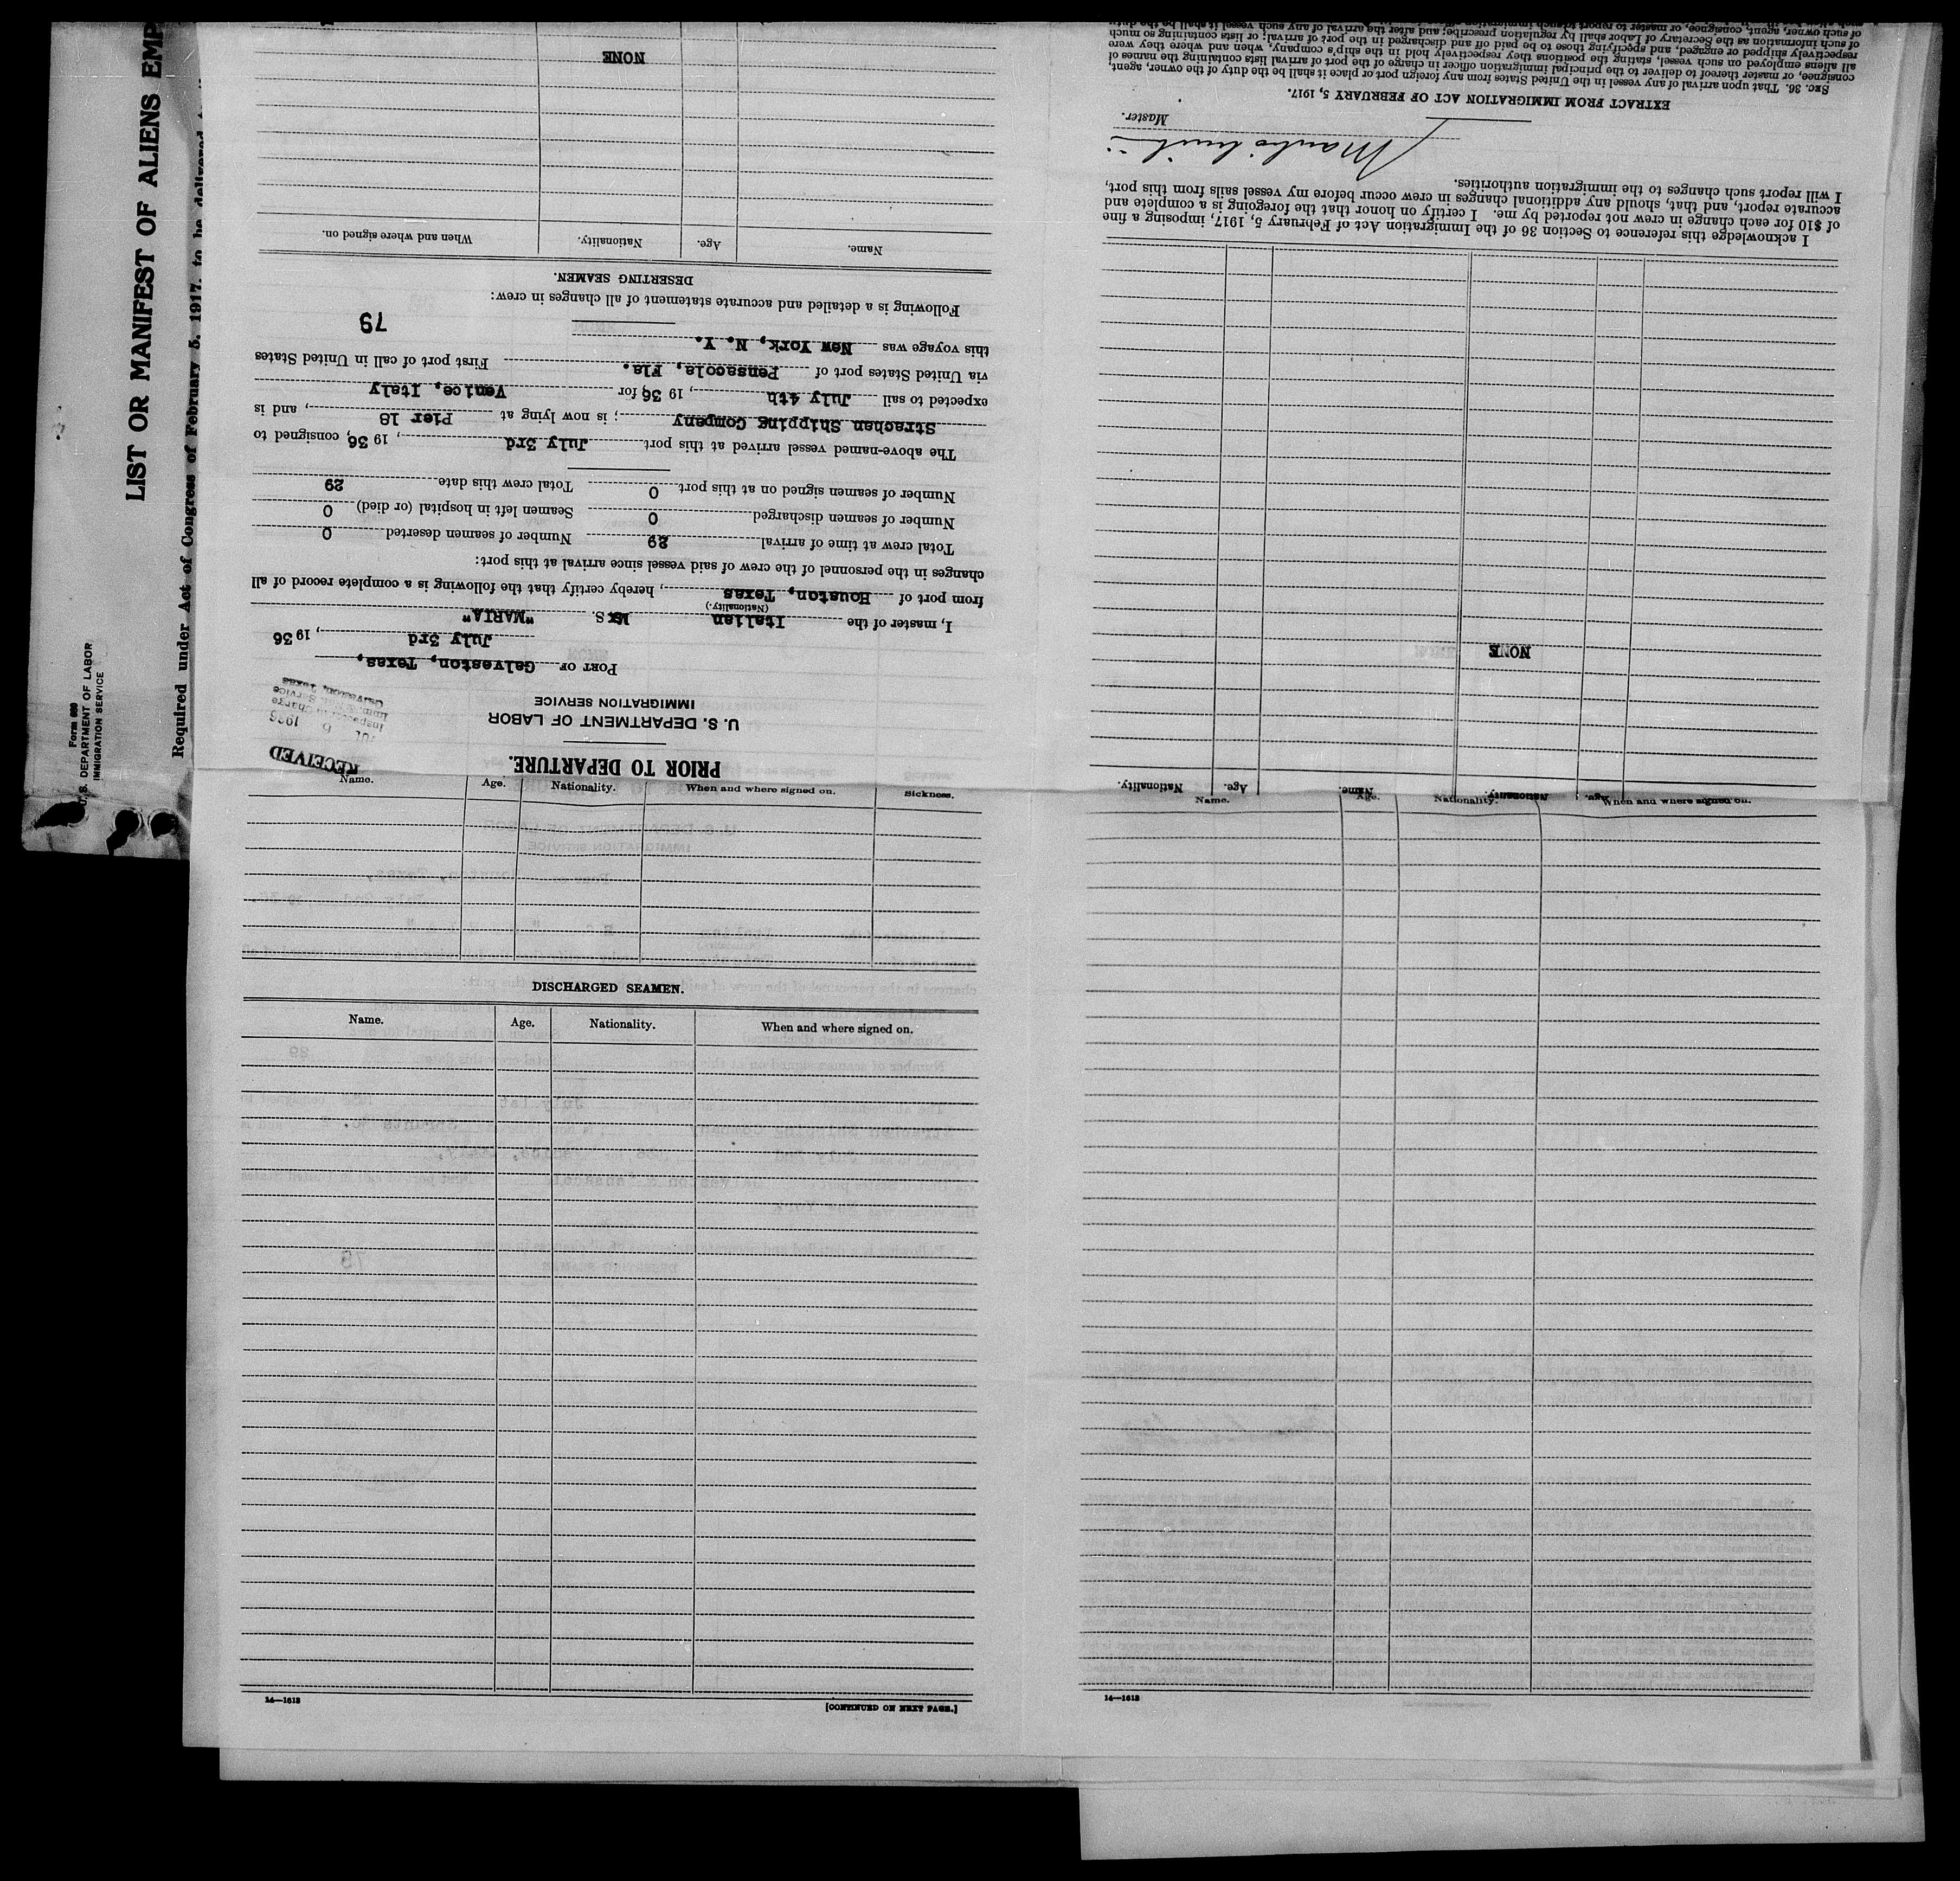 LIST OR MANIFEST OF ALIENS EMP
Required under Act of Congress of February 5, 1917, to be delivered
Form 689
U. S. DEPARTMENT OF LABOR
IMMIGRATION SERVICE
PRIOR TO DEPARTURE.
RECEIVED
JUL 6 1936
Inspector in Charge
Immigration Service
Galveston, Texas
U. S. DEPARTMENT OF LABOR
IMMIGRATION SERVICE
PORT OF Galveston, Texas,
July 3rd, 1936
I, master of the Italian M.S. "MARIA"
(Nationality.)
from port of Houston, Texas, hereby certify that the following is a complete record of all
changes in the personnel of the crew of said vessel since arrival at this port:
Total crew at time of arrival 29 Number of seamen deserted 0
Number of seamen discharged 0 Seamen left in hospital (or died) 0
Number of seamen signed on at this port 0 Total crew this date 29
The above-named vessel arrived at this port July 3rd, 1936, consigned to
Strachan Shipping Company; is now lying at Pier 18, and is
expected to sail July 4th, 1936 for Venice, Italy
via United States port of Pensacola, Fla. First port of call in United States
this voyage was New York, N. Y.
79
Following is a detailed and accurate statement of all changes in crew:
DESERTING SEAMEN.
Name. Age. Nationality. When and where signed on.
NONE
Name. Age. Nationality. When and where signed on. Sickness.
DISCHARGED SEAMEN.
Name. Age. Nationality. When and where signed on.
14—1613 [CONTINUED ON NEXT PAGE.]
Name. Age. Nationality. Name. Age. Nationality.
NONE
I acknowledge this reference to Section 36 of the Immigration Act of February 5, 1917, imposing a fine
of $10 for each change in crew not reported by me. I certify on honor that the foregoing is a complete and
accurate report, and that, should any additional changes in crew occur before my vessel sails from this port,
I will report such changes to the immigration authorities.
Master.
EXTRACT FROM IMMIGRATION ACT OF FEBRUARY 5, 1917.
SEC. 36. That upon arrival of any vessel in the United States from any foreign port or place it shall be the duty of the owner, agent,
consignee, or master thereof to deliver to the principal immigration officer in charge of the port of arrival lists containing the names of
all aliens employed on such vessel, stating the positions they respectively hold in the ship's company, when and where they were
respectively shipped or engaged, and specifying those to be paid off and discharged in the port of arrival; or lists containing so much
of such information as the Secretary of Labor shall by regulation prescribe; and after the arrival of any such vessel it shall be the duty
of such owner, agent, consignee, or master to report to such immigration
Name. Age. Nationality. When and where signed on.
14—1613